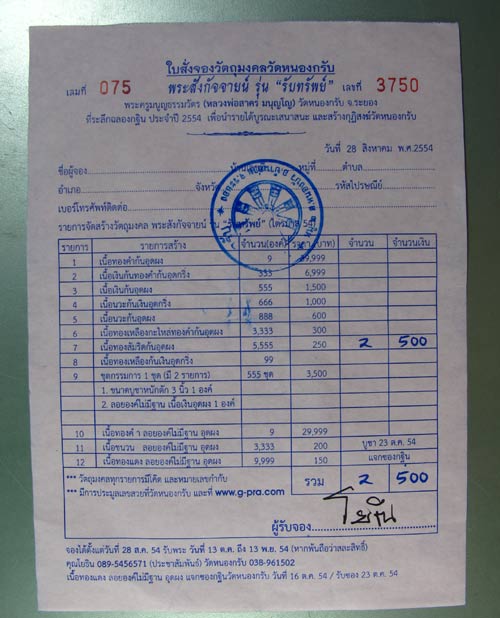 ใบสั่งจองวัตถุมงคลวัดหนองกรับ
เล่มที่ 075 พระสังกัจจายน์ รุ่น “รับทรัพย์” เลขที่ 3750
พระครูมนูญธรรมวัตร (หลวงพ่อสาคร มนุญโญ) วัดหนองกรับ จ.ระยอง
ที่ระลึกฉลองกฐิน ประจำปี 2554 เพื่อนำรายได้บูรณะเสนาสนะ และสร้างกุฏิสงฆ์วัดหนองกรับ
วันที่ 28 สิงหาคม พ.ศ.2554
ชื่อผู้จอง หมู่ที่ ตำบล
อำเภอ จังหวัด รหัสไปรษณีย์
เบอร์โทรศัพท์ติดต่อ
รายการจัดสร้างวัตถุมงคล พระสังกัจจายน์ รุ่น “รับทรัพย์” (ไตรมาส 54)
รายการ รายการสร้าง จำนวน(องค์) ราคา (บาท) จำนวน จำนวนเงิน
1 เนื้อทองคำก้นอุดผง 9 39,999
2 เนื้อเงินก้นทองคำก้นอุดกริ่ง 333 6,999
3 เนื้อเงินก้นอุดผง 555 1,500
4 เนื้อนวะก้นเงินอุดกริ่ง 666 1,000
5 เนื้อนวะก้นอุดผง 888 600
6 เนื้อทองเหลืองกะไหล่ทองคำก้นอุดผง 3,333 300
7 เนื้อทองสัมริดก้นอุดผง 5,555 250 2 500
8 เนื้อทองเหลืองก้นเงินอุดกริ่ง 99
9 ชุดกรรมการ 1 ชุด (มี 2 รายการ) 555 ชุด 3,500
1. ขนาดบูชาหน้าตัก 3 นิ้ว 1 องค์
2. ลอยองค์ไม่มีฐาน เนื้อเงินอุดผง 1 องค์
10 เนื้อทองคำ ลอยองค์ไม่มีฐาน อุดผง 9 29,999
11 เนื้อชนวน ลอยองค์ไม่มีฐาน อุดผง 3,333 200 บูชา 23 ต.ค. 54
12 เนื้อทองแดง ลอยองค์ไม่มีฐาน อุดผง 9,999 150 แจกจองกฐิน
*** วัตถุมงคลทุกรายการมีโค๊ต และหมายเลขกำกับ รวม 2 500
*** มีการประมูลเลขสวยที่วัดหนองกรับ และที่ www.g-pra.com
ผู้รับจอง โยธิน
จองได้ตั้งแต่วันที่ 28 ส.ค. 54 รับพระ วันที่ 13 ต.ค. ถึง 13 พ.ย. 54 (หากพ้นถือว่าสละสิทธิ์)
คุณโยธิน 089-5456571 (ประชาสัมพันธ์) วัดหนองกรับ 038-961502
เนื้อทองแดง ลอยองค์ไม่มีฐาน อุดผง แจกจองกฐินวัดหนองกรับ วันที่ 16 ต.ค. 54 / รับของ 23 ต.ค. 54